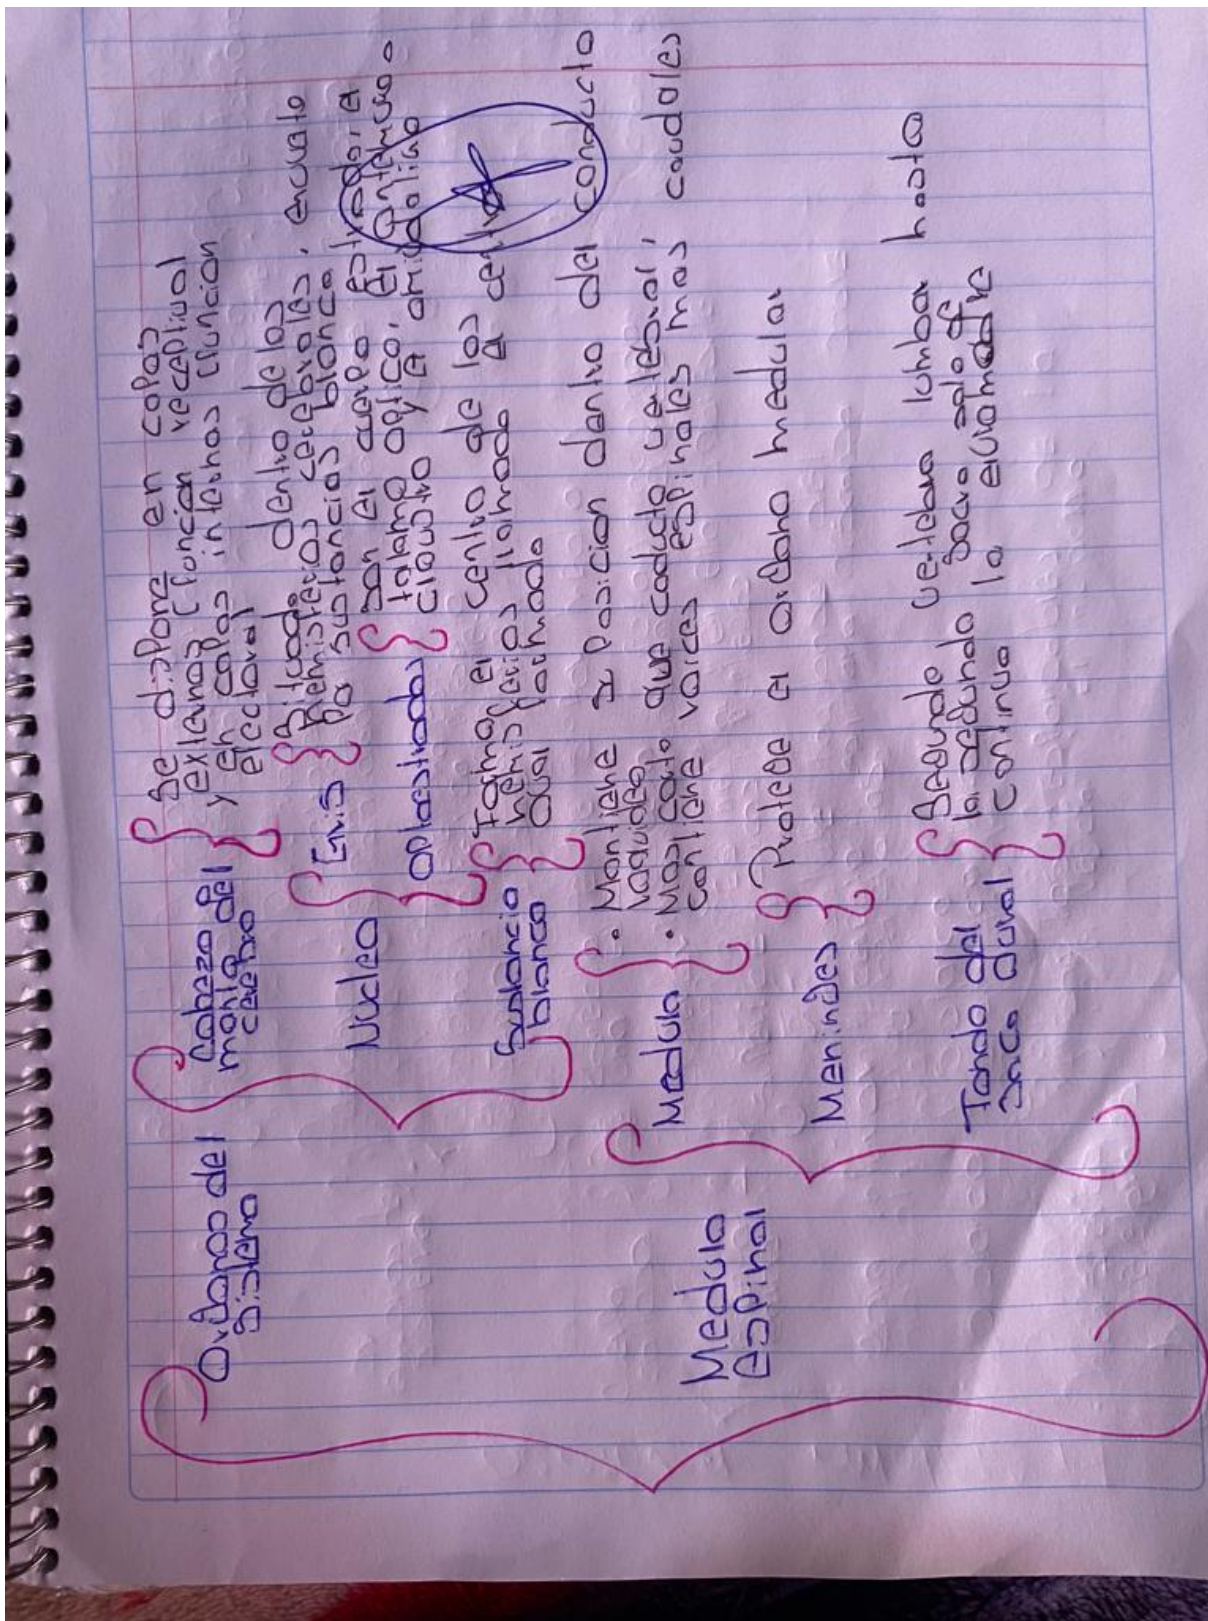 Organos del
Sistema
Cabeza o
manto del
cerebro
Se dispone en capas
externas (funcion receptival
y en capas internas (funcion
efectoral
Nucleo
Gris
Situado dentro de los
hemisferios cerebrales, envuelto
po sustancias blanca
optoestriados
Son el cuerpo estriado, el
talamo optico, el antemuro o
claustro y el amigdalino
Sustancia
blanca
Forma el centro de los
hemisferios llamado el centro
oval
Medula
espinal
Medula
• Mantiene su posicion dentro del conducto
raquideo
• Mas corto que coducto vertebral,
contiene raices espinales mas caudales
Meninges
Protege el organo medular
Fondo del
saco dural
Segundo vertebra lumbar hasta
la segunda sacra solo
continua la